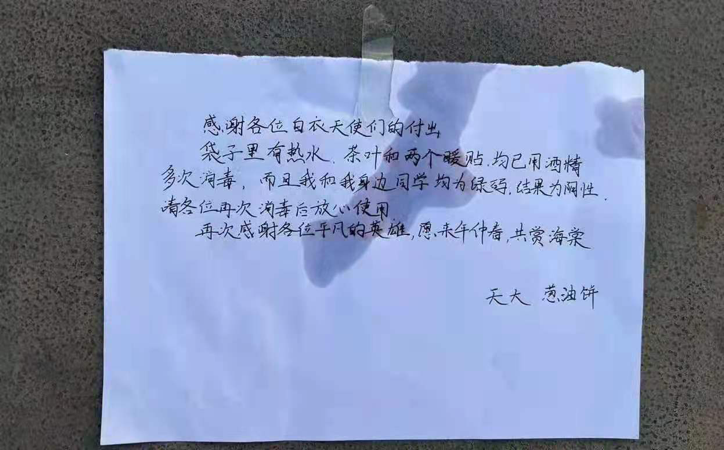 感谢各位白衣天使们的付出
袋子里有热水、茶叶和两个暖贴,均已用酒精
多次消毒，而且我和我身边同学均为绿码,结果为阴性.
请各位再次消毒后放心使用
再次感谢各位平凡的英雄,愿来年仲春,共赏海棠
天大 葱油饼